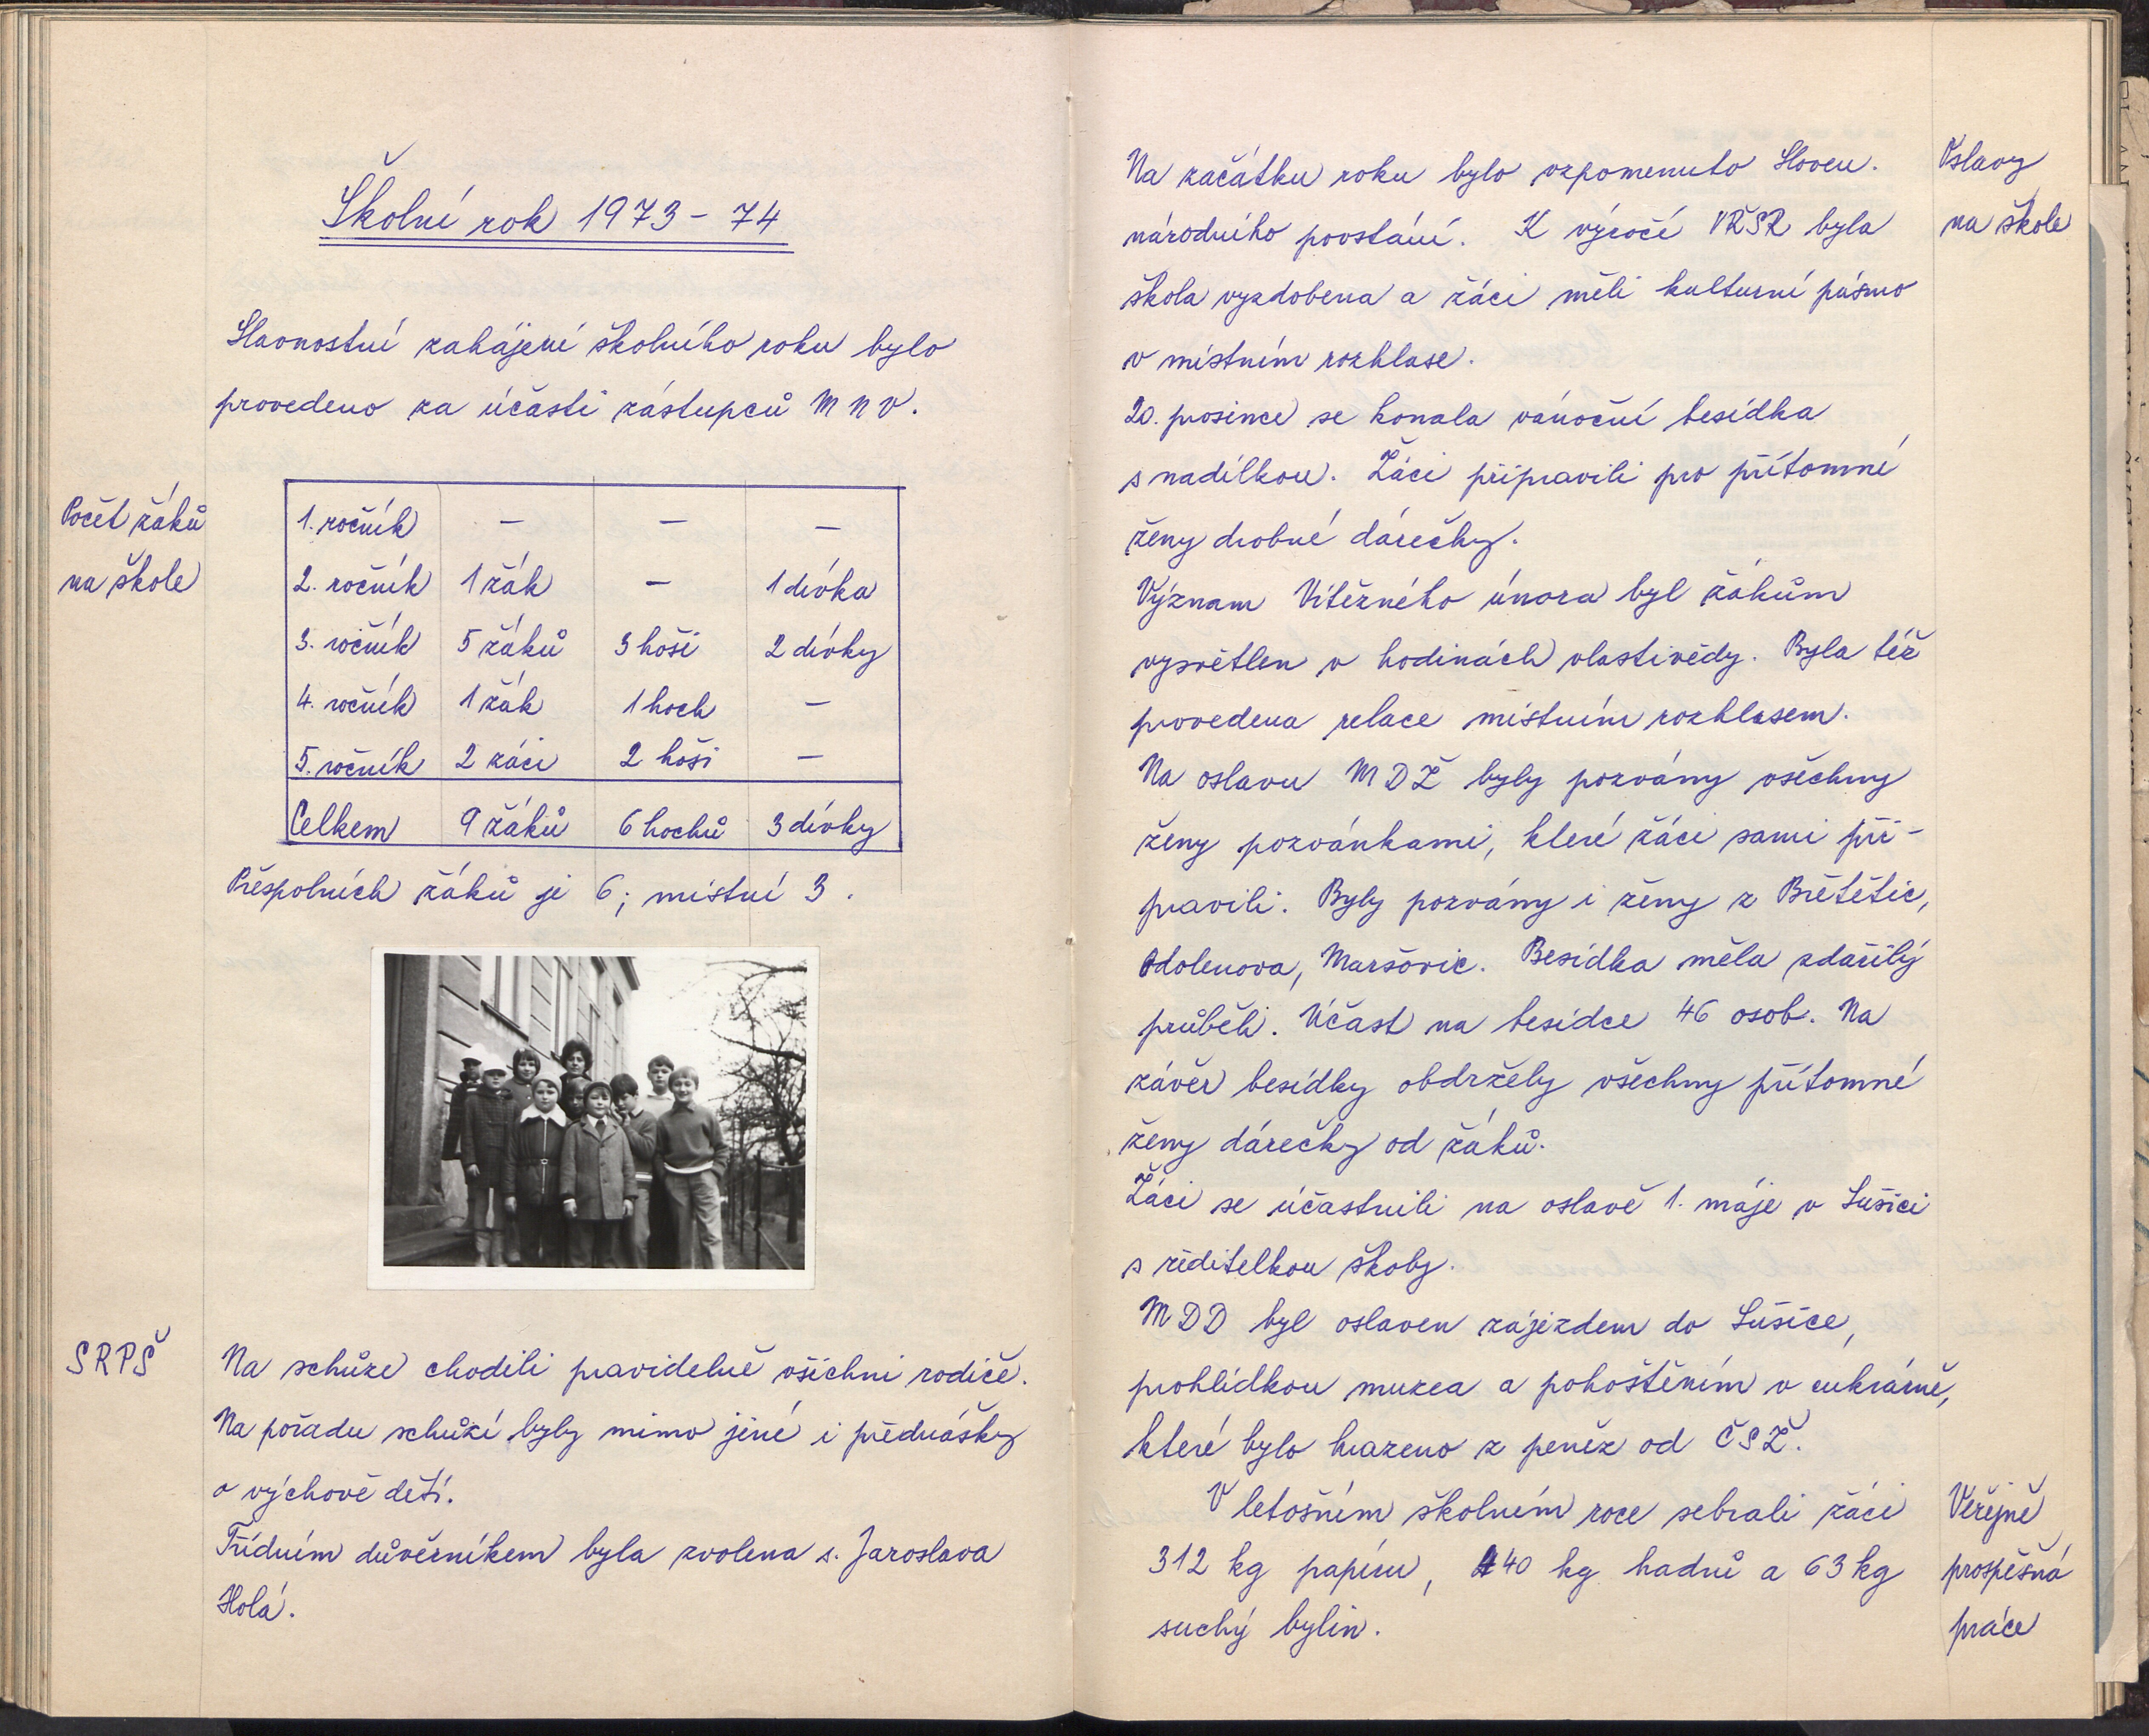 Školní rok 1973 - 74
Slavnostní zahájení školního roku bylo
provedeno za účasti zástupců MNV.
Počet žáků
na škole
1. ročník — — —
2. ročník 1 žák — 1 dívka
3. ročník 5 žáků 3 hoši 2 dívky
4. ročník 1 žák 1 hoch —
5. ročník 2 žáci 2 hoši —
Celkem 9 žáků 6 hochů 3 dívky
Přespolních žáků je 6; místní 3.
SRPŠ
Na schůze chodili pravidelně všichni rodiče.
Na pořadu schůzí byly mimo jiné i přednášky
o výchově dětí.
Třídním důvěrníkem byla zvolena s. Jaroslava
Holá.
Na začátku roku bylo vzpomenuto Sloven.
národního povstání. K výročí VŘSR byla
škola vyzdobena a žáci měli kulturní pásmo
v místním rozhlase.
20. prosince se konala vánoční besídka
s nadílkou. Žáci připravili pro přítomné
ženy drobné dárečky.
Význam Vítězného února byl žákům
vysvětlen v hodinách vlastivědy. Byla též
provedena relace místním rozhlasem.
Na oslavu MDŽ byly pozvány všechny
ženy pozvánkami, které žáci sami při-
pravili. Byly pozvány i ženy z Břetětic,
Odolenova, Maršovic. Besídka měla zdařilý
průběh. Účast na besídce 46 osob. Na
závěr besídky obdržely všechny přítomné
ženy dárečky od žáků.
Žáci se účastnili na oslavě 1. máje v Sušici
s ředitelkou školy.
MDD byl oslaven zájezdem do Sušice,
prohlídkou muzea a pohoštěním v cukrárně,
které bylo hrazeno z peněz od ČSŽ.
V letošním školním roce sebrali žáci
312 kg papíru, 440 kg hadrů a 63 kg
suchý bylin.
Oslavy
na škole
Veřejně
prospěšná
práce